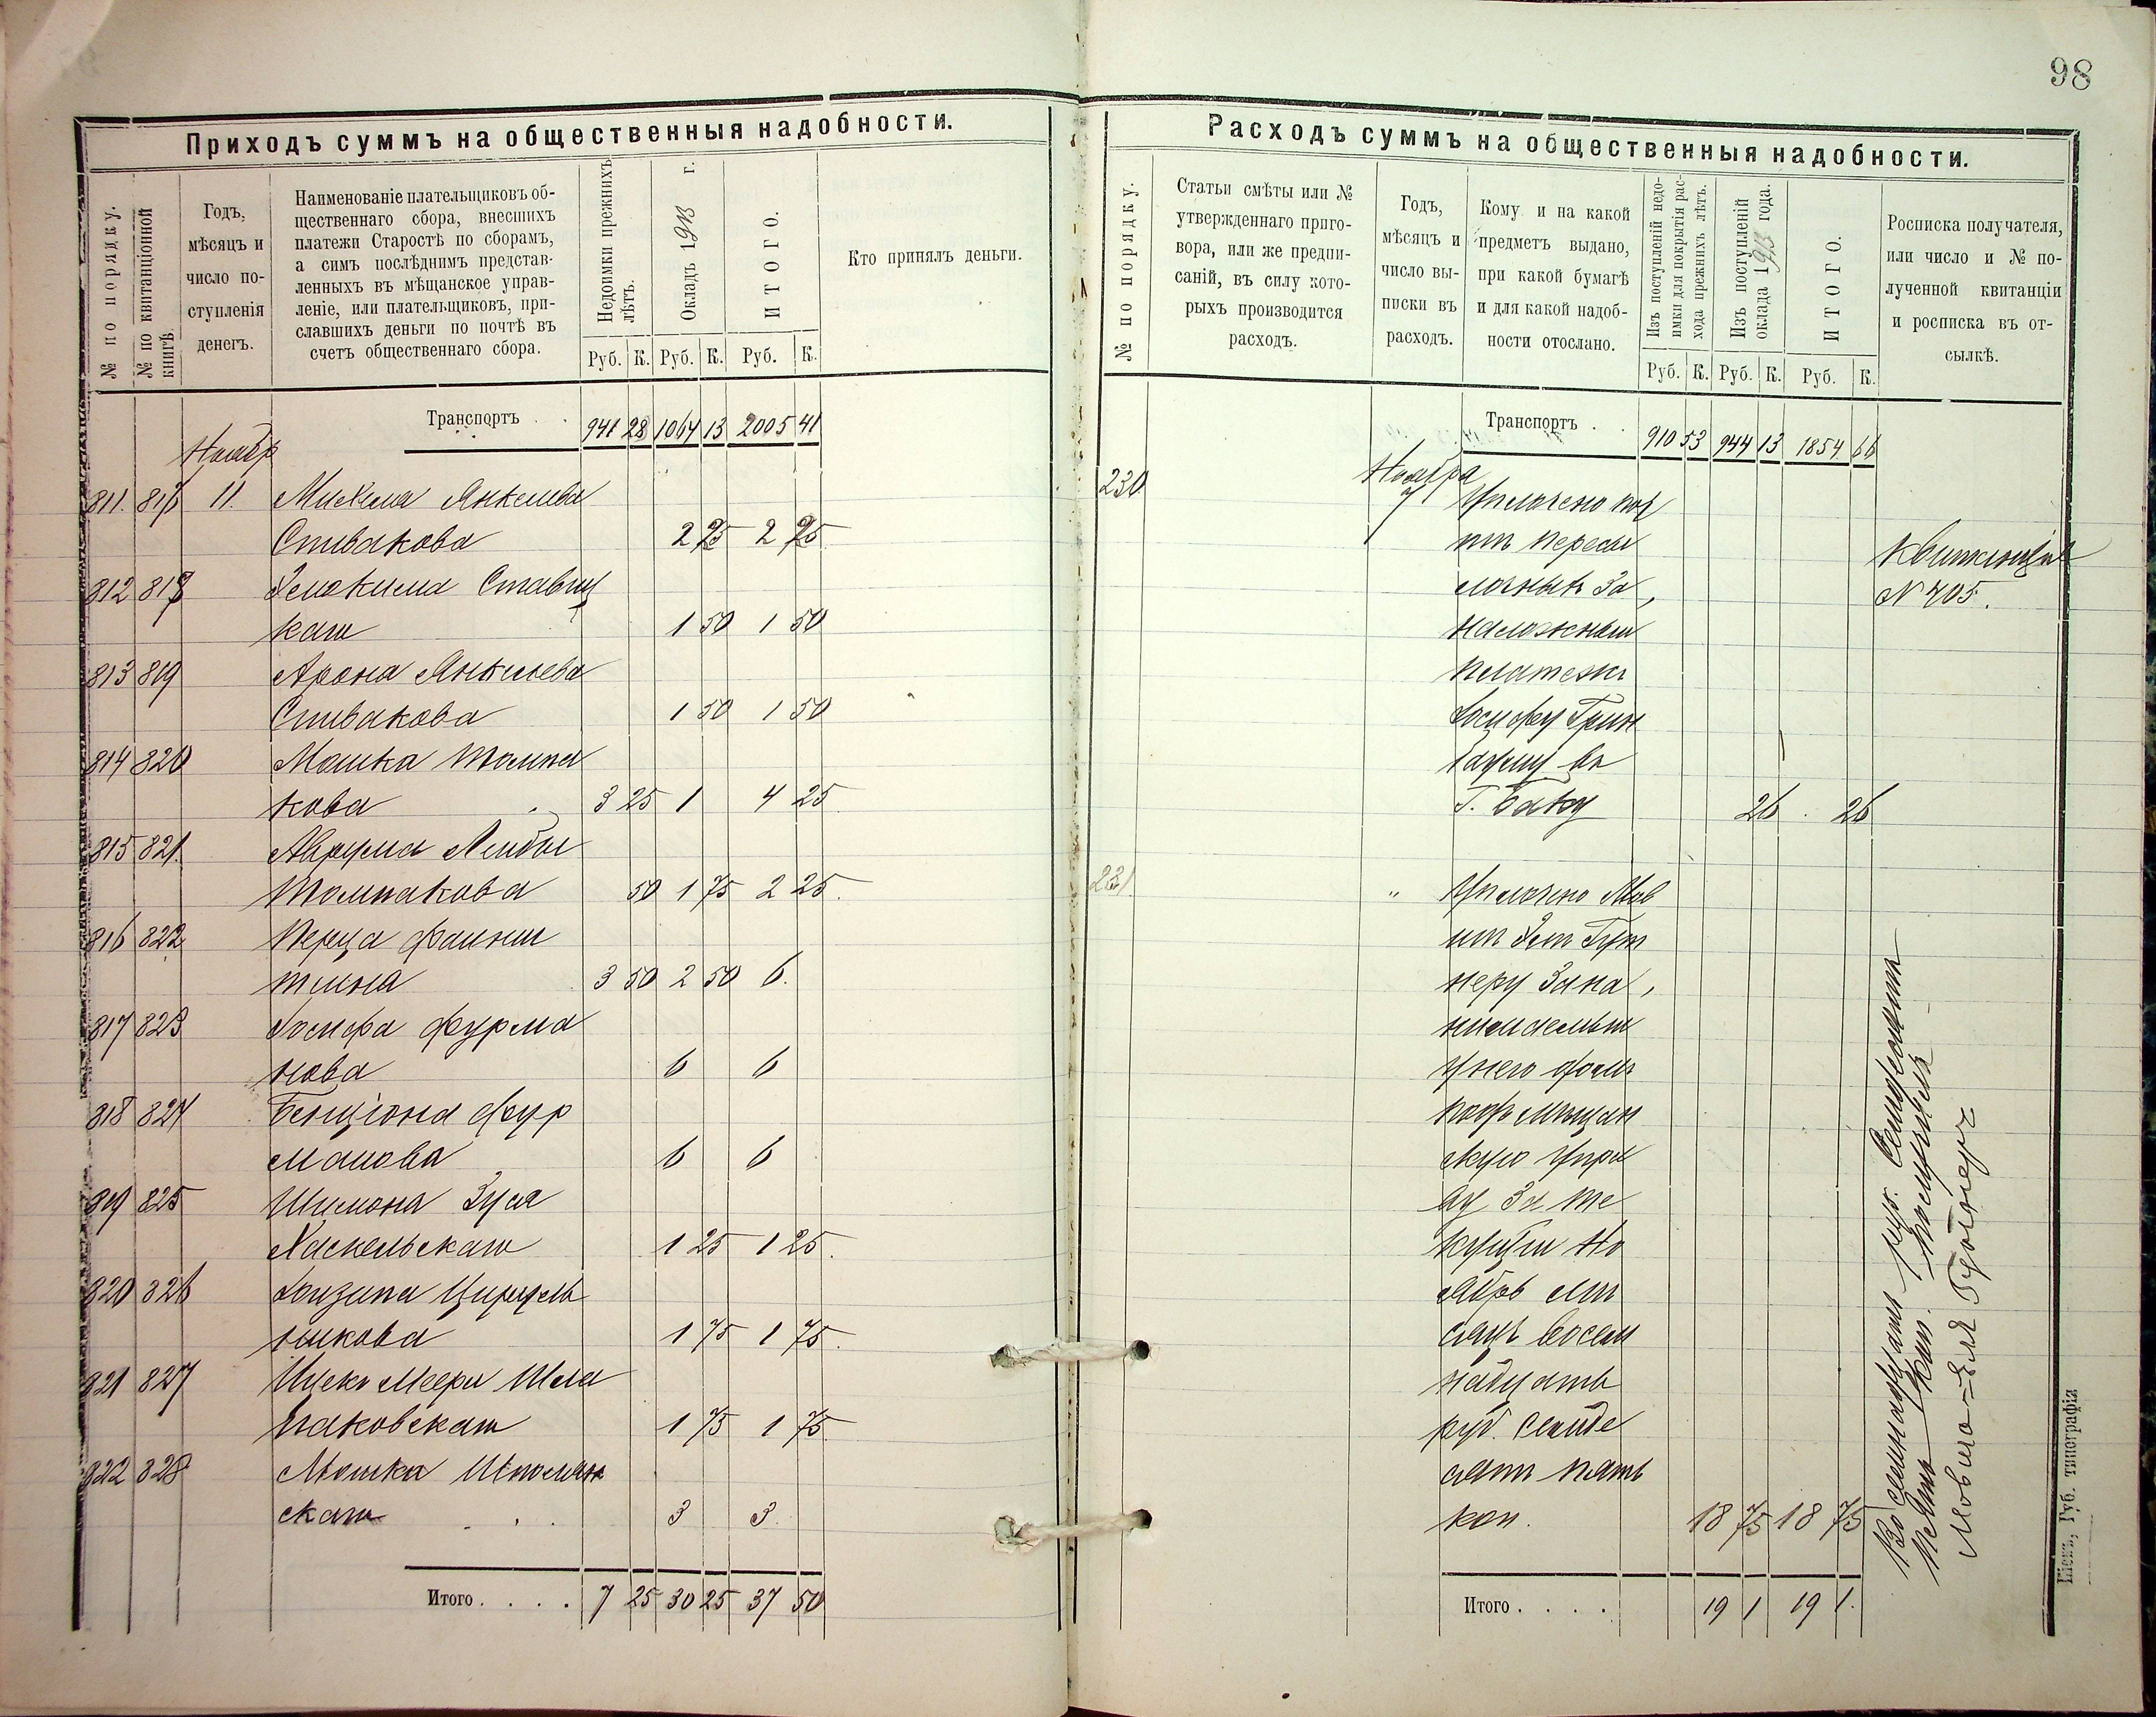 98
Приходъ суммъ на общественныя надобности.
№ по порядку.
№ по квитанціонной книгѣ.
Годъ, мѣсяцъ и число поступленія денегъ.
Наименованіе плательщиковъ об-
щественнаго сбора, внесшихъ
платежи Старостѣ по сборамъ,
а симъ послѣднимъ представ-
ленныхъ въ мѣщанское управ-
леніе, или плательщиковъ, при-
славшихъ деньги по почтѣ въ
счетъ общественнаго сбора.
Недоимки прежнихъ лѣтъ.
Окладъ 1913 г.
ИТОГО.
Кто принялъ деньги.
Руб. К. Руб. К. Руб. К.
Транспортъ . . 941 28 1064 13 2005 41
Ноябр
811. 817 11. Михеля Янкелева
Спивакова 2 25 2 25
812 818
каго 1 50 1 50
813 819 Арона Янкелева
Спивакова 1 50 1 50
814 820 Мошка Толпа
кова 3 25 1 4 25
815 821. Аврума Лейбы
Толпакова 50 1 75 2 25.
816 822 Переца Файнш
тейна 3 50 2 50 6.
817 823 Іосифа Фурма
нова 6 6
818 824 Бенціона Фур
манова 6 6
819 825 Шимона Зуся
Хаскельскаго 1 25 1 25.
820 826 Цируль
никова 1 75 1 75.
821 827 Ицек Меера Шпа
ковскаго 1 75 1 75.
822 828 Мошка Шполян
скаго 3 3.
Итого . . . . 7 25 30 25 37 50
Расходъ суммъ на общественныя надобности.
№ по порядку.
Статьи смѣты или №
утвержденнаго приго-
вора, или же предпи-
саній, въ силу кото-
рыхъ производится
расходъ.
Годъ, мѣсяцъ и число вы-
писки въ расходъ.
Кому и на какой
предметъ выдано,
при какой бумагѣ
и для какой надоб-
ности отослано.
Изъ поступленій недо-
имки для покрытія рас-
хода прежнихъ лѣтъ.
Изъ поступленій
оклада 1913 года.
ИТОГО.
Росписка получателя,
или число и № по-
лученной квитанціи
и росписка въ от-
сылкѣ.
Руб. К. Руб. К. Руб. К.
Транспортъ . . 910 53 944 13 1854 66
Ноября
230 7 Уплочено поч
тѣ пересы
лочныхъ за
наложеным
платежъ
Іосифу Грин
бауму въ
г. Баку 26 . 26
Квитанція
№ 705.
231 " Уплочено Мов
ше Эля Гут
неру за на,
нимаемыя
у него
подъ мѣщан
скую упра
ву за те
кущій но
ябрь мѣ
сяцъ восем
надцать
руб. семьде
сятъ пять
коп. 18 75 18 75
Восемнадцать руб. Семьдесятъ
пять коп. получилъ
Мовша-Эля Гутнеръ
Итого . . . . 19 1 19 1.
Губ. типографія